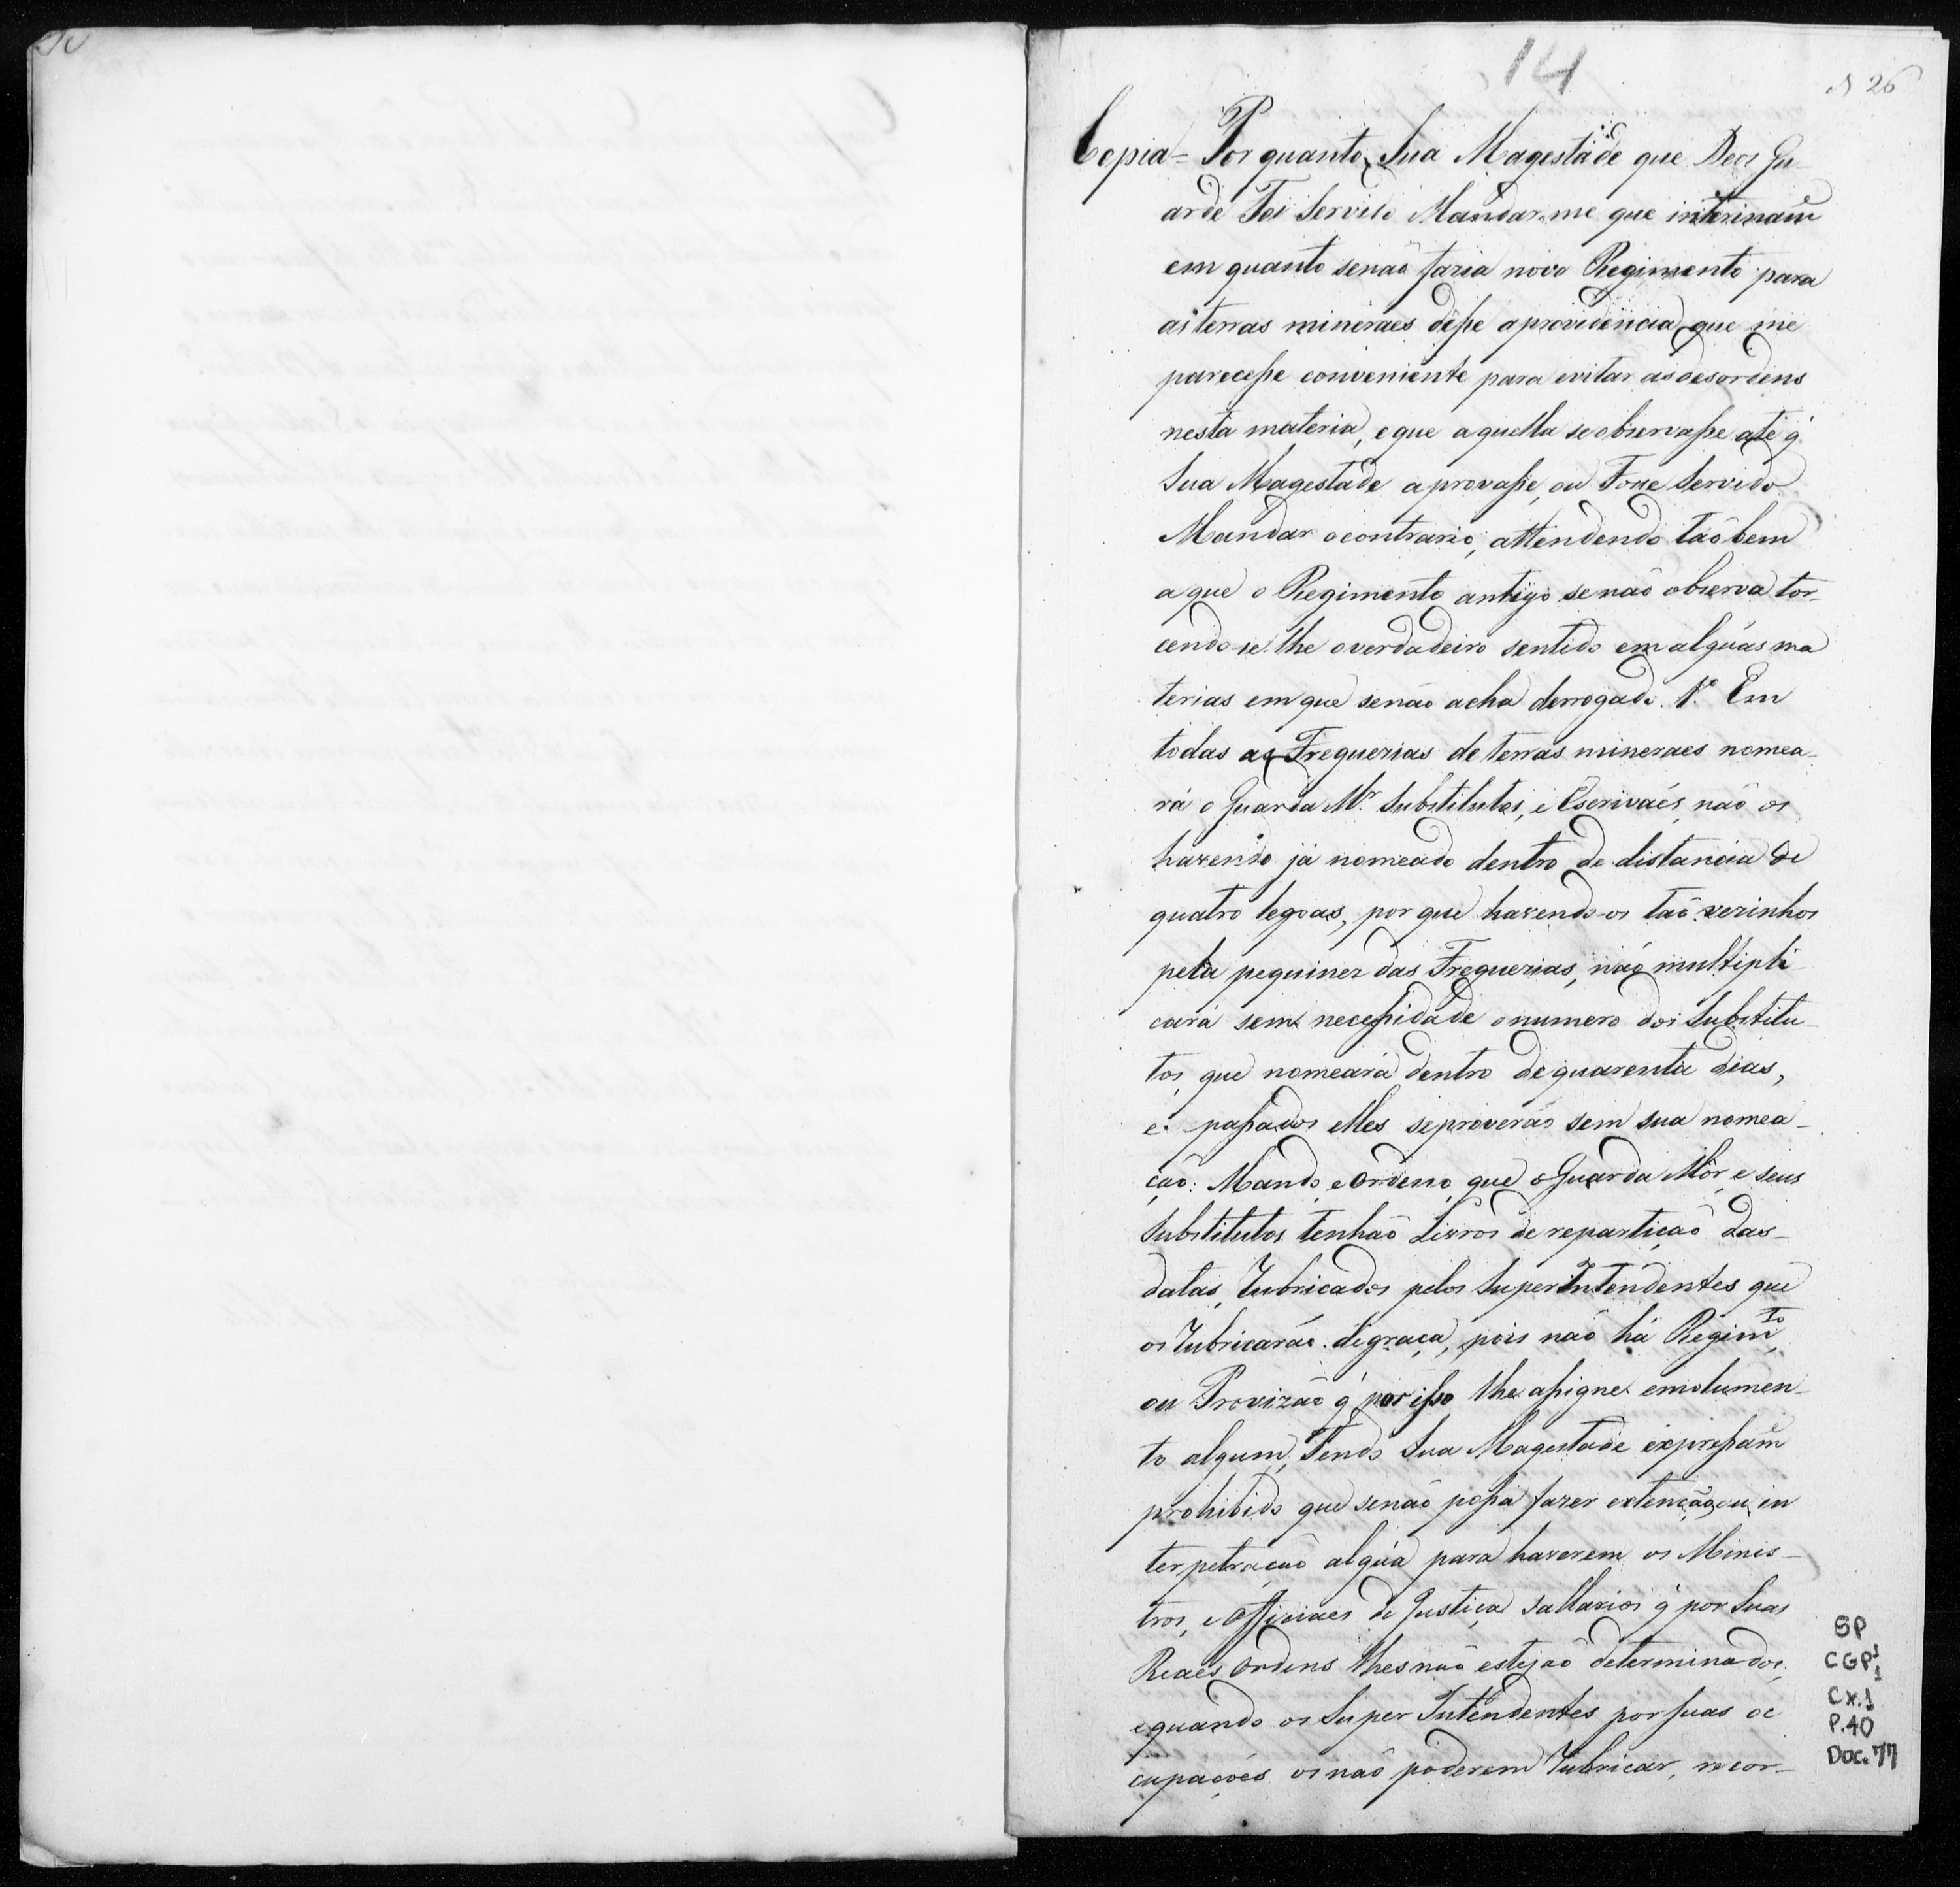 14
N 26
Copia = Por quanto Sua Magestade que Deos Gu-
arde Foi Servido Mandar-me que interinam.e
em quanto senaõ fazia novo Regimento para
as terras mineraes désse a providencia, que me
parecesse conveniente para evitar as desordens
nesta materia, e que aquella se observasse até q'
Sua Magestade aprovasse, ou Fosse Servido
Mandar o contrario, attendendo taõbem
a que o Regimento antigo se naõ observa tor-
cendo-se-lhe o verdadeiro sentido em algũas ma
terias em que senaõ acha derrogado. 1.º Em
todas as Freguezias de terras mineraes nomea-
rá o Guarda M.r Substitutos, e Escrivaẽs, naõ os
havendo já nomeado dentro de distancia de
quatro legoas, por que havendo-os taõ vezinhos
pela pequinez das Freguezias, naõ multipli
cará sem necessidade o numero dos Substitu-
tos, que nomeará dentro de quarenta dias,
e passados elles se proveraõ sem sua nomea-
çaõ: Mando, e Ordeno, que o Guarda Mór, e seus
Substitutos tenhaõ Livros de repartiçaõ das
datas, Rubricados pelos SuperIntendentes que
os Rubricaraõ de graça, pois naõ há Regim.to
ou Provizaõ q' por isso lhe assigne emolumen-
to algum, Tendo Sua Magestade expressam.e
prohibido que senaõ possa fazer extençaõ, ou in
terpetraçaõ algũa para haverem os Minis-
tros, e Officiaes de Justiça sallarios q' por Suas
Reaes Ordens lhes naõ estejaõ determinados,
e quando os Super Intendentes por suas oc
cupaçoẽs os naõ poderem Rubricar, recor-
SP
CGP1
1
Cx.1
P.40
Doc.77